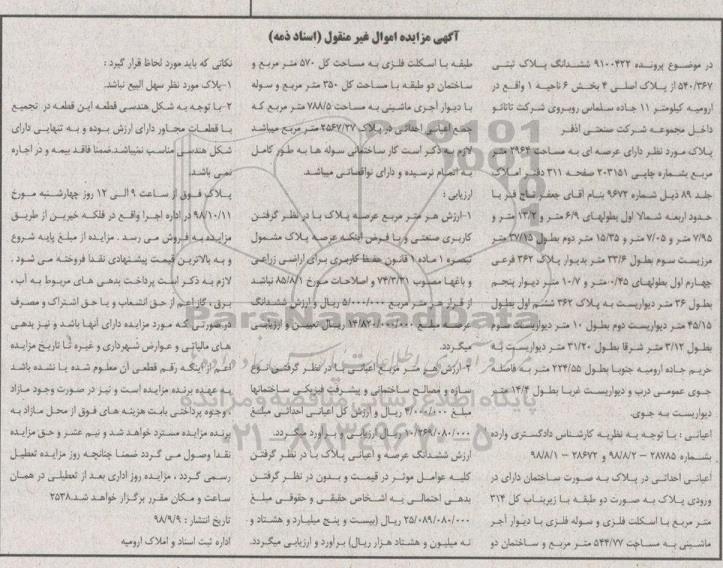 آگهی مزایده اموال غیر منقول (اسناد ذمه)
در موضوع پرونده ۹۱۰۰۴۲۲ ششدانگ پلاک ثبتی
۵۴۰/۳۶۷ از پلاک اصلی ۴ بخش ۶ ناحیه ۱ واقع در
ارومیه کیلومتر ۱۱ جاده سلماس روبروی شرکت تاتائو
داخل مجموعه شرکت صنعتی آذفر
پلاک مورد نظر دارای عرصه ای به مساحت ۲۹۶۴ متر
مربع بشماره چاپی ۲۰۳۱۵۱ صفحه ۳۱۱ دفتر املاک
جلد ۸۹ ذیل شماره ۹۶۷۲ بنام آقای جعفر نتاج فنر با
حدود اربعه شمالا اول بطولهای ۶/۹ متر و ۱۳/۲ متر و
۷/۹۵ متر و ۵/۰۷ متر و ۱۵/۳۵ متر دوم بطول ۳۷/۱۵ متر
مرزیست سوم بطول ۳۳/۶ متر بدیوار پلاک ۳۶۲ فرعی
چهارم اول بطولهای ۰/۴۵ متر و ۱۰/۷ متر دیوار پنجم
بطول ۳۶ متر دیواریست به پلاک ۳۶۲ ششم اول بطول
۴۵/۱۵ متر دیواریست دوم بطول ۱۰ متر دیواریست سوم
بطول ۳/۱۲ متر شرقا بطول ۳۱/۲۰ متر دیواریست به
حریم جاده ارومیه جنوبا بطول ۲۲۴/۵۵ متر به فاصله
جوی عمومی درب و دیواریست غربا بطول ۱۴/۴ متر
دیواریست به جوی.
اعیانی : با توجه به نظریه کارشناس دادگستری وارده
بشماره ۲۸۷۸۵ – ۹۸/۸/۲ و ۲۸۶۷۲ – ۹۸/۸/۱
اعیانی احداثی در پلاک به صورت ساختمان دارای در
ورودی پلاک به صورت دو طبقه با زیربنای کل ۳۱۴
متر مربع با اسکلت فلزی و سوله فلزی با دیوار آجر
ماشینی به مساحت ۵۴۴/۷۷ متر مربع و ساختمان دو
طبقه با اسکلت فلزی به مساحت کل ۵۷۰ متر مربع و
ساختمان دو طبقه با مساحت کل ۳۵۰ متر مربع و سوله
با دیوار آجری ماشینی به مساحت ۷۸۸/۵ متر مربع که
جمع اعیانی احداثی در پلاک ۲۵۶۷/۲۷ متر مربع میباشد
لازم به ذکر است کار ساختمانی سوله ها به طور کامل
به اتمام نرسیده و دارای نواقصاتی میباشد.
ارزیابی :
۱-ارزش هر متر مربع عرصه پلاک با در نظر گرفتن
کاربری صنعتی و با فرض اینکه عرصه پلاک مشمول
تبصره ۱ ماده ۱ قانون حفظ کاربری برای اراضی زراعی
و باغها مصوب ۷۴/۳/۳۱ و اصلاحات مورخ ۸۵/۸/۱ نباشد
از قرار هر متر مربع ۵/۰۰۰/۰۰۰ ریال و ارزش ششدانگ
عرصه مبلغ ۱۴/۸۲۰/۰۰۰/۰۰۰ ریال تعیین و ارزیابی
میگردد.
۲-ارزش هر متر مربع اعیانی با در نظر گرفتن نوع
سازه و مصالح ساختمانی و پیشرفت فیزیکی ساختمانها
مبلغ ۴/۰۰۰/۰۰۰ ریال و ارزش کل اعیانی احداثی مبلغ
۱۰/۲۶۹/۰۸۰/۰۰۰ ریال ارزیابی و برآورد میگردد.
ارزش ششدانگ عرصه و اعیانی پلاک با در نظر گرفتن
کلیه عوامل موثر در قیمت و بدون در نظر گرفتن
بدهی احتمالی به اشخاص حقیقی و حقوقی مبلغ
۲۵/۰۸۹/۰۸۰/۰۰۰ ریال (بیست و پنج میلیارد و هشتاد و
نه میلیون و هشتاد هزار ریال) برآورد و ارزیابی میگردد.
نکاتی که باید مورد لحاظ قرار گیرد :
۱-پلاک مورد نظر سهل البیع نباشد.
۲-با توجه به شکل هندسی قطعه این قطعه در تجمیع
با قطعات مجاور دارای ارزش بوده و به تنهایی دارای
شکل هندسی مناسب نمیباشد.ضمنا فاقد بیمه و در اجاره
نمی باشد.
پلاک فوق از ساعت ۹ الی ۱۲ روز چهارشنبه مورخ
۹۸/۱۰/۱۱ در اداره اجرا واقع در فلکه خیرین از طریق
مزایده به فروش می رسد . مزایده از مبلغ پایه شروع
و به بالاترین قیمت پیشنهادی نقدا فروخته می شود .
لازم به ذکر است پرداخت بدهی های مربوط به آب ،
برق ، گاز اعم از حق انشعاب و یا حق اشتراک و مصرف
در صورتی که مورد مزایده دارای آنها باشد و نیز بدهی
های مالیاتی و عوارض شهرداری و غیره تا تاریخ مزایده
اعم از اینکه رقم قطعی آن معلوم شده یا نشده باشد
به عهده برنده مزایده است و نیز در صورت وجود مازاد
، وجوه پرداختی بابت هزینه های فوق از محل مازاد به
برنده مزایده مسترد خواهد شد و نیم عشر و حق مزایده
نقدا وصول می گردد ضمنا چنانچه روز مزایده تعطیل
رسمی گردد ، مزایده روز اداری بعد از تعطیلی در همان
ساعت و مکان مقرر برگزار خواهد شد.۲۵۳۸
تاریخ انتشار : ۹۸/۹/۹
اداره ثبت اسناد و املاک ارومیه
ParsNamadData
پایگاه اطلاع رسانی مناقصه و مزایده
۰۲۱-۸۸۳۴۹۶۷۰-۵